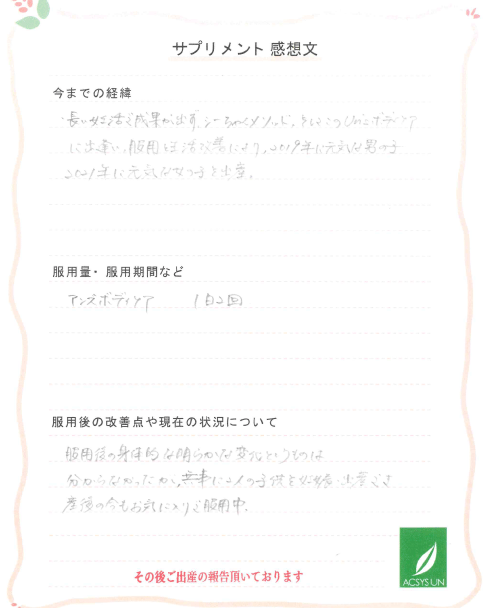 サプリメント 感想文
今までの経緯
長い妊活で成果が出ず、
に出逢い、服用と 2019年に元気な男の子
2021年に元気な女の子を出産。
服用量・服用期間など
アンズボディケア 1日2回
服用後の改善点や現在の状況について
服用後の身体的な明らかな変化というものは
分からなかったが、無事に2人の子供を妊娠・出産でき
産後の今もお気に入りで服用中。
その後ご出産の報告頂いております
ACSYS UN